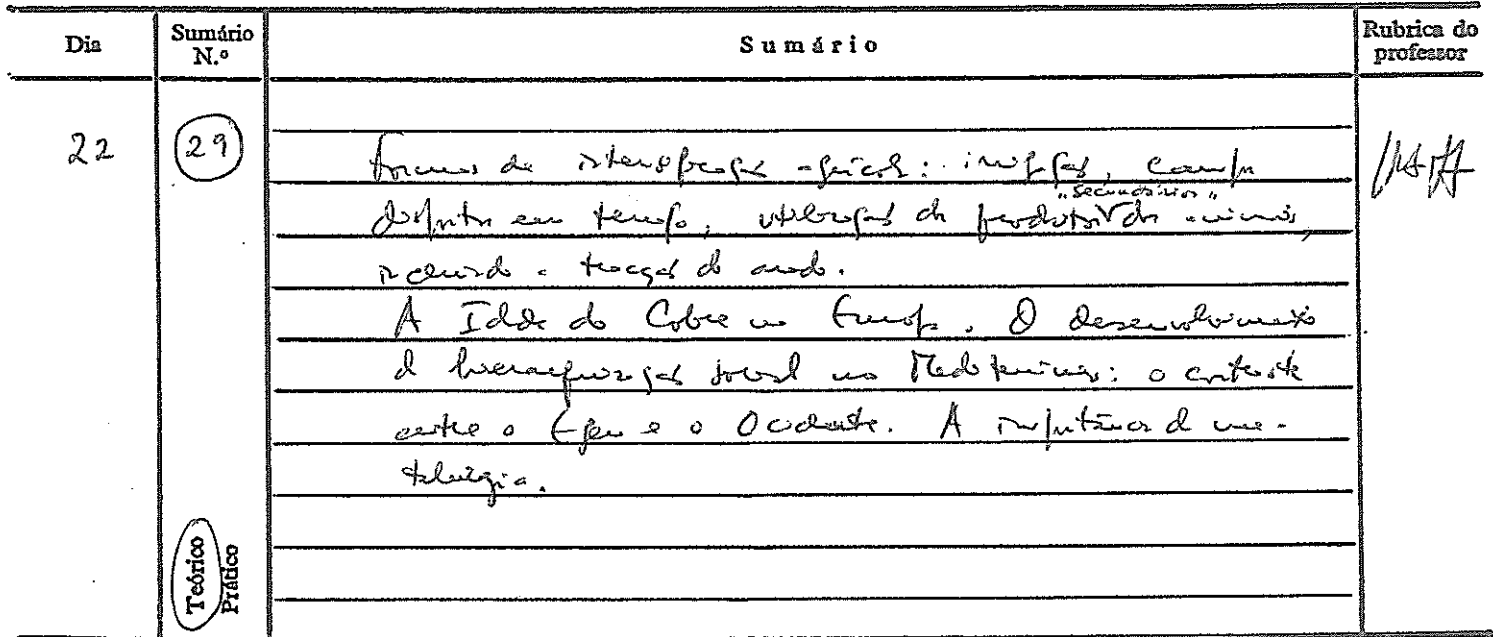 Dia
Sumário N.º
Sumário
Rubrica do professor
22
29
Formas de intensificação agrícola: irrigação, campos
"secundários"
em tempo, utilização de produtos dos animais,
incluindo a tracção do arado.
A Idade do Cobre na Europa. O desenvolvimento
da hierarquização social no Mediterrâneo: o contraste
entre o Egeu e o Ocidente. A importância da me-
talurgia.
Teórico
Prático